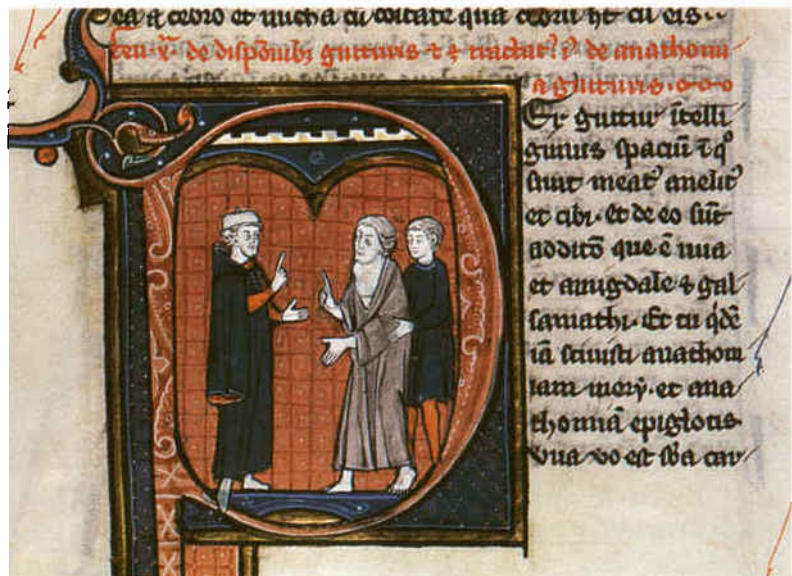 a cebro et nucha cū cōitate qua cebrū ht cū eis
de dispōnibꝫ gutturis ⁊ ē tractatꝰ pꝰ de anathomi
a gutturis
Er guttur ītelli
gimus spaciū ī qͦ
sunt meatꝰ anelitꝰ
et cibi. Et de eo sūt
additō que ē uua
et amigdale ⁊ gal
samathi. Et tu qͥdē
iā sciuisti anathom
iam mery. et ana
thomiā epiglotis.
vua vͦo est sba car